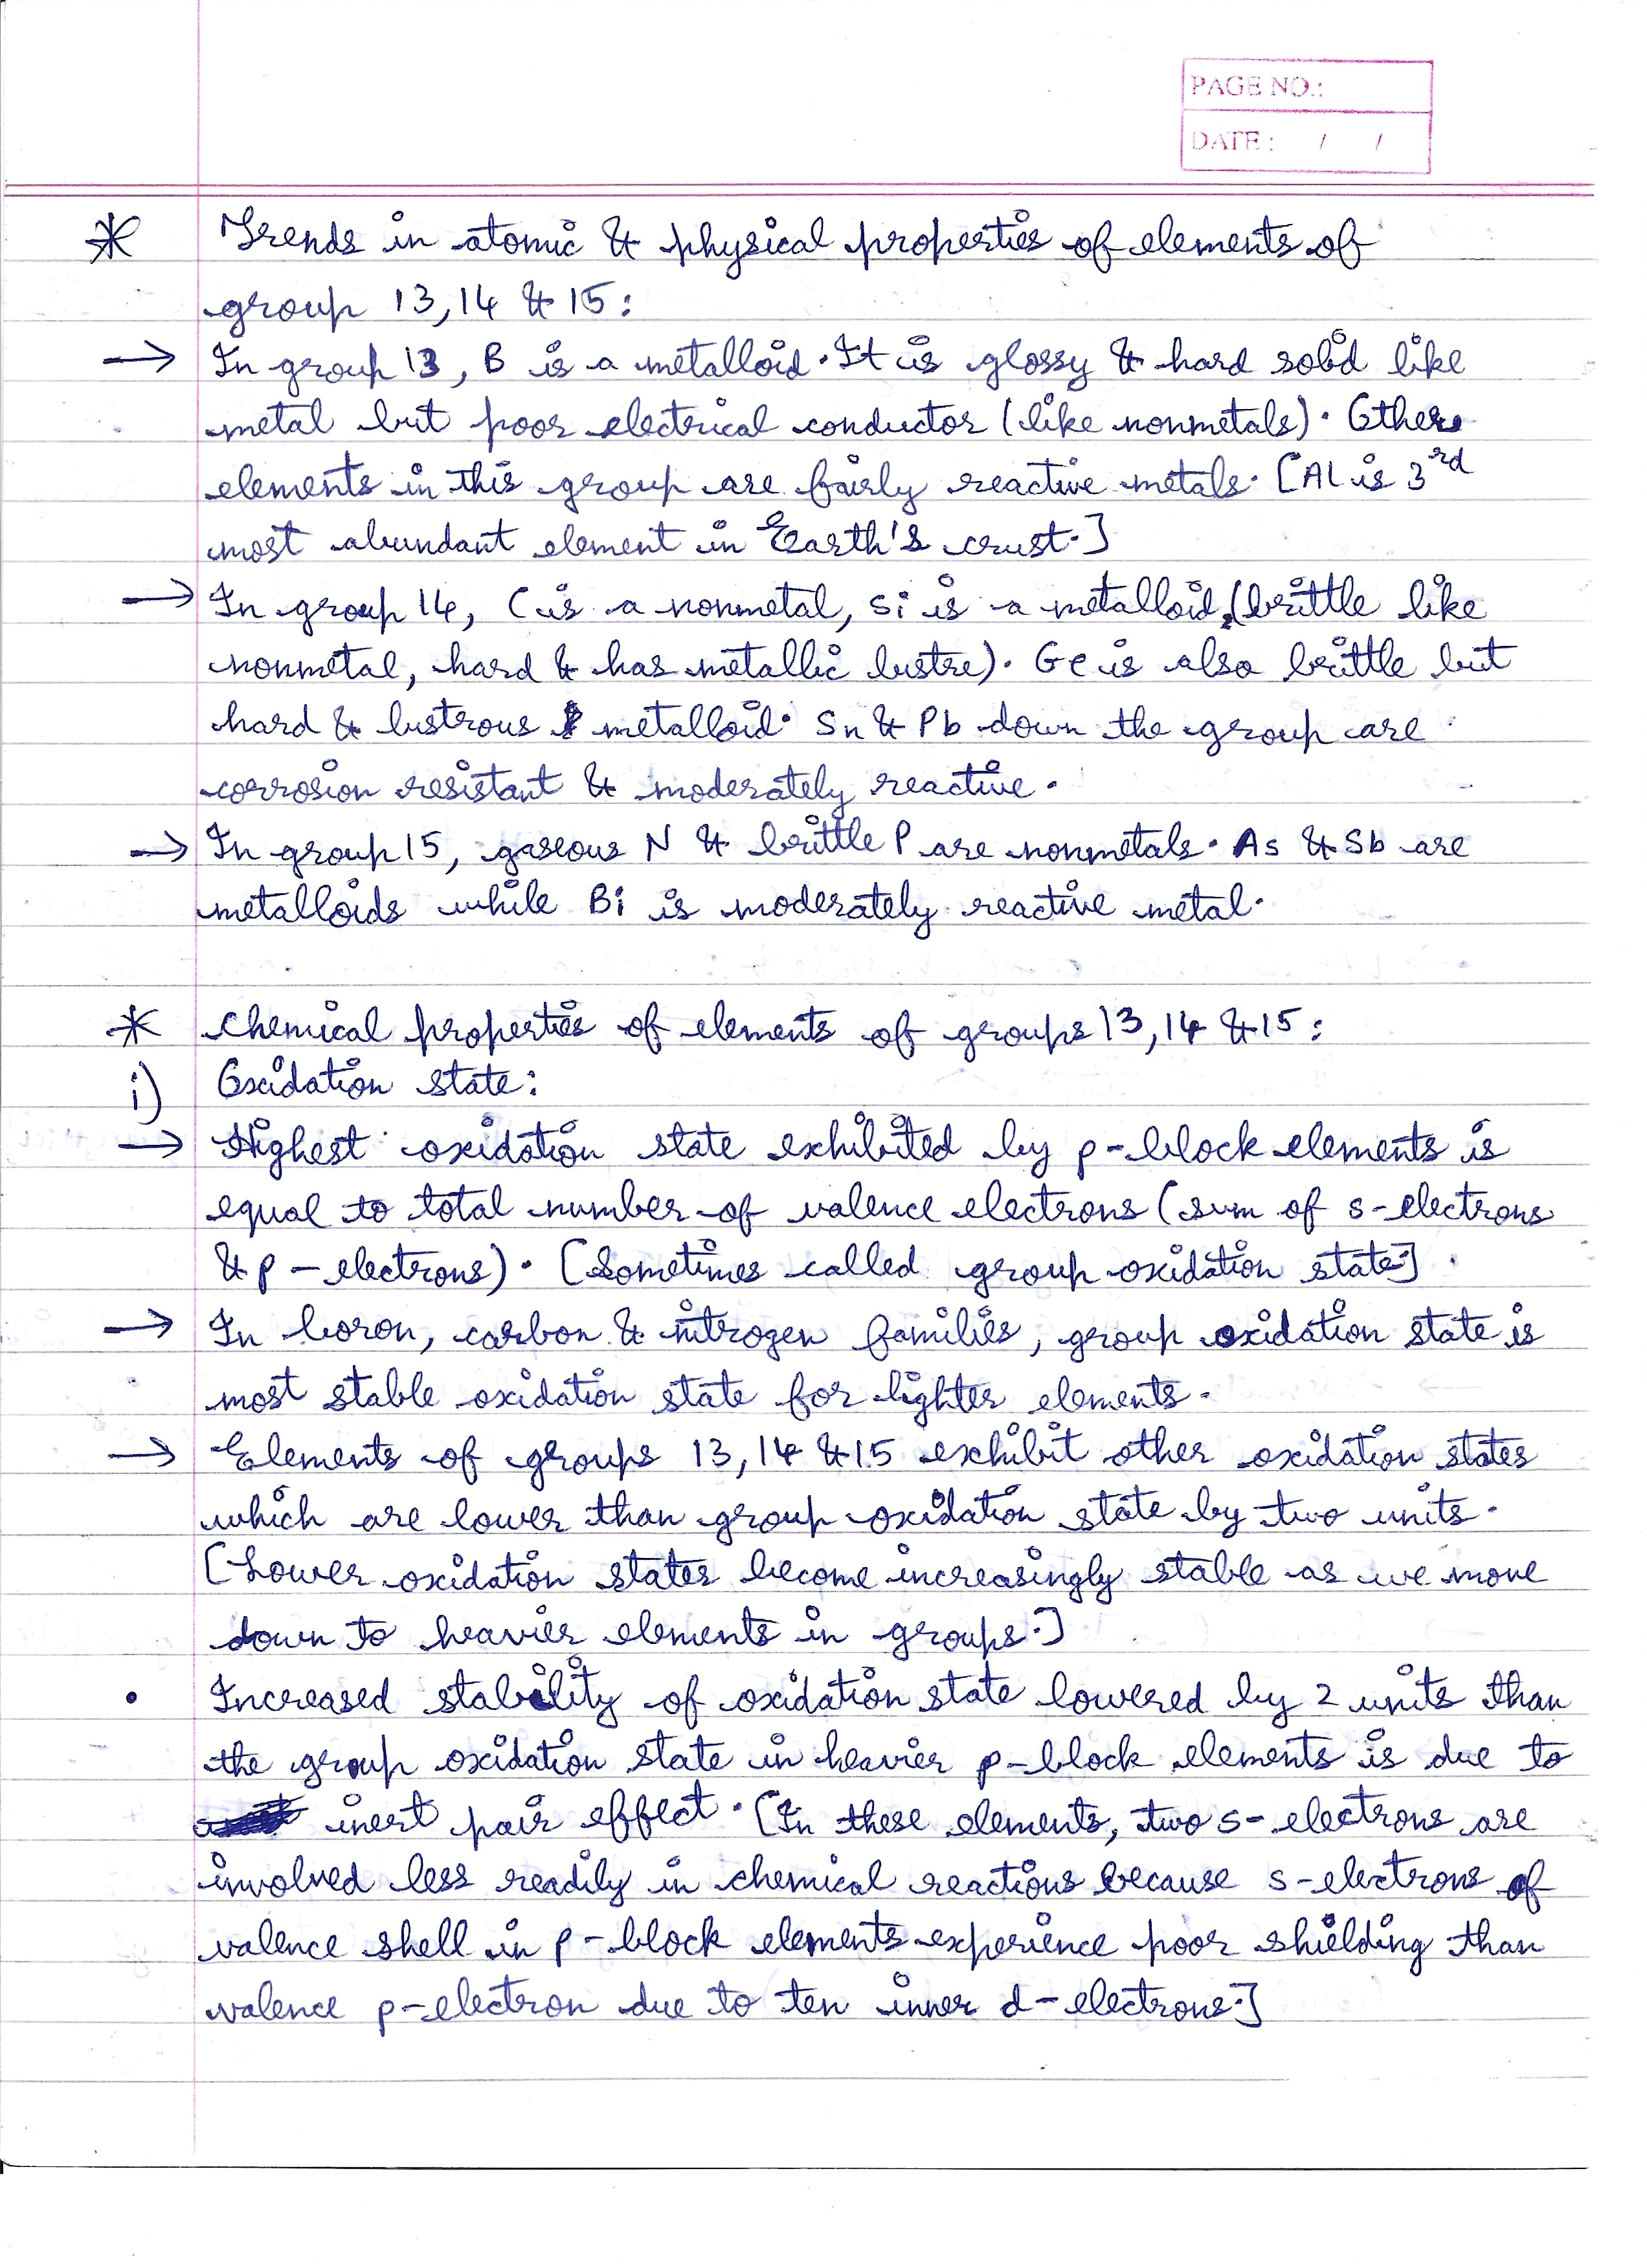 PAGE NO.:
DATE: / /
* Trends in atomic & physical properties of elements of
group 13, 14 & 15:
→ In group 13, B is a metalloid. It is glossy & hard solid like
metal but poor electrical conductor (like nonmetals). Others
elements in this group are fairly reactive metals. [Al is 3rd
most abundant element in Earth's crust.]
→ In group 14, C is a nonmetal, Si is a metalloid, (brittle like
nonmetal, hard & has metallic lustre). Ge is also brittle but
hard & lustrous metalloid. Sn & Pb down the group are
corrosion resistant & moderately reactive.
→ In group 15, gaseous N & brittle P are nonmetals. As & Sb are
metalloids while Bi is moderately reactive metal.
* Chemical properties of elements of groups 13, 14 & 15:
i) Oxidation state:
→ Highest oxidation state exhibited by p-block elements is
equal to total number of valence electrons (sum of s-electrons
& p-electrons). [Sometimes called group oxidation state.]
→ In boron, carbon & nitrogen families, group oxidation state is
most stable oxidation state for lighter elements.
→ Elements of groups 13, 14 & 15 exhibit other oxidation states
which are lower than group oxidation state by two units.
[Lower oxidation states become increasingly stable as we move
down to heavier elements in groups.]
• Increased stability of oxidation state lowered by 2 units than
the group oxidation state in heavier p-block elements is due to
inert pair effect. [In these elements, two s-electrons are
involved less readily in chemical reactions because s-electrons of
valence shell in p-block elements experience poor shielding than
valence p-electron due to ten inner d-electrons.]